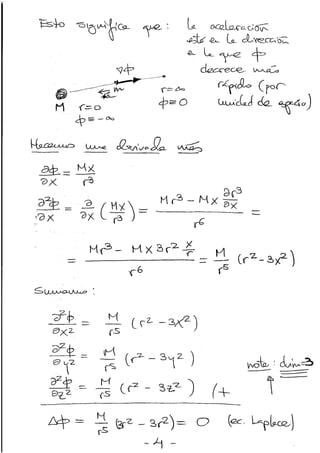 Esto significa que: la aceleración
está en la dirección
a la que φ
decrece más
rápido (por
unidad de espacio)
∇φ
m
M r=0
φ=-∞
r=∞
φ=0
Hacemos una derivada más
∂φ/∂x = Mx/r³
∂²φ/∂x = ∂/∂x (Mx/r³) = (Mr³ - Mx ∂r³/∂x)/r⁶ =
= (Mr³ - Mx3r² x/r)/r⁶ = M/r⁵ (r²-3x²)
Sumamos:
∂²φ/∂x² = M/r⁵ (r²-3x²)
∂²φ/∂y² = M/r⁵ (r²-3y²)
∂²φ/∂z² = M/r⁵ (r²-3z²) (+
note: dim=3
Δφ = M/r⁵ (3r²-3r²) = 0 (ec. Laplace)
-4-